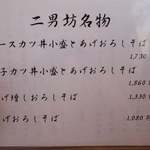 二男坊名物
ースカツ丼小盛とあげおろしそば
1,730
子カツ丼小盛とあげおろしそば
1,860
げ越しおろしそば
1,330
げおろしそば
1,080 円